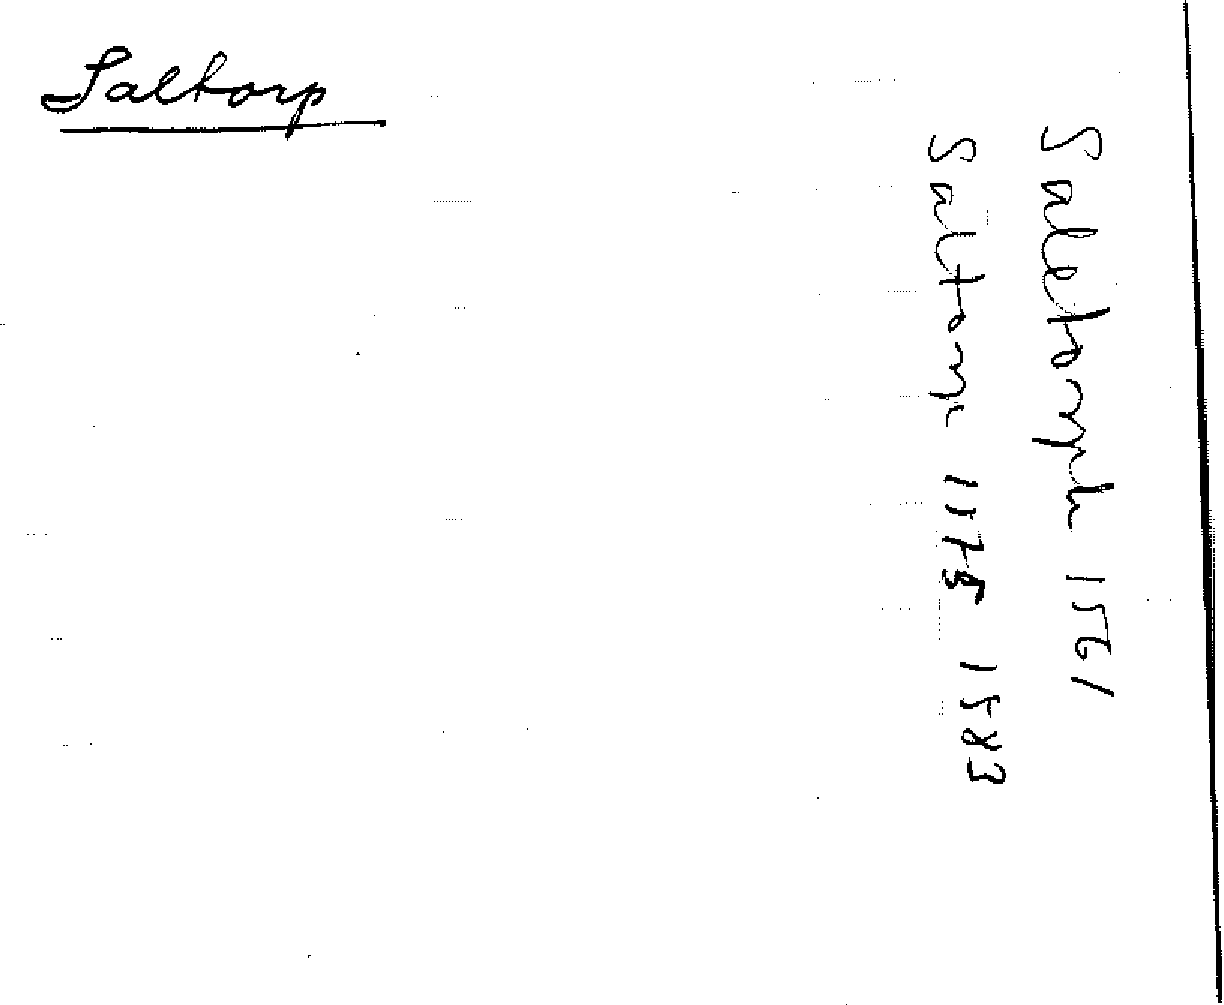 Saltorp
Saletorph 1561
Saltorp 1575 1583